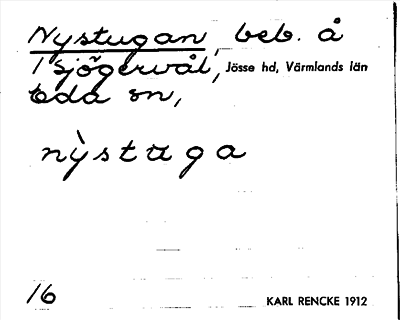 Nystugan, beb. å
1 Sjögervål, Jösse hd, Värmlands län
Eda sn,
nỳstuga
16 KARL RENCKE 1912